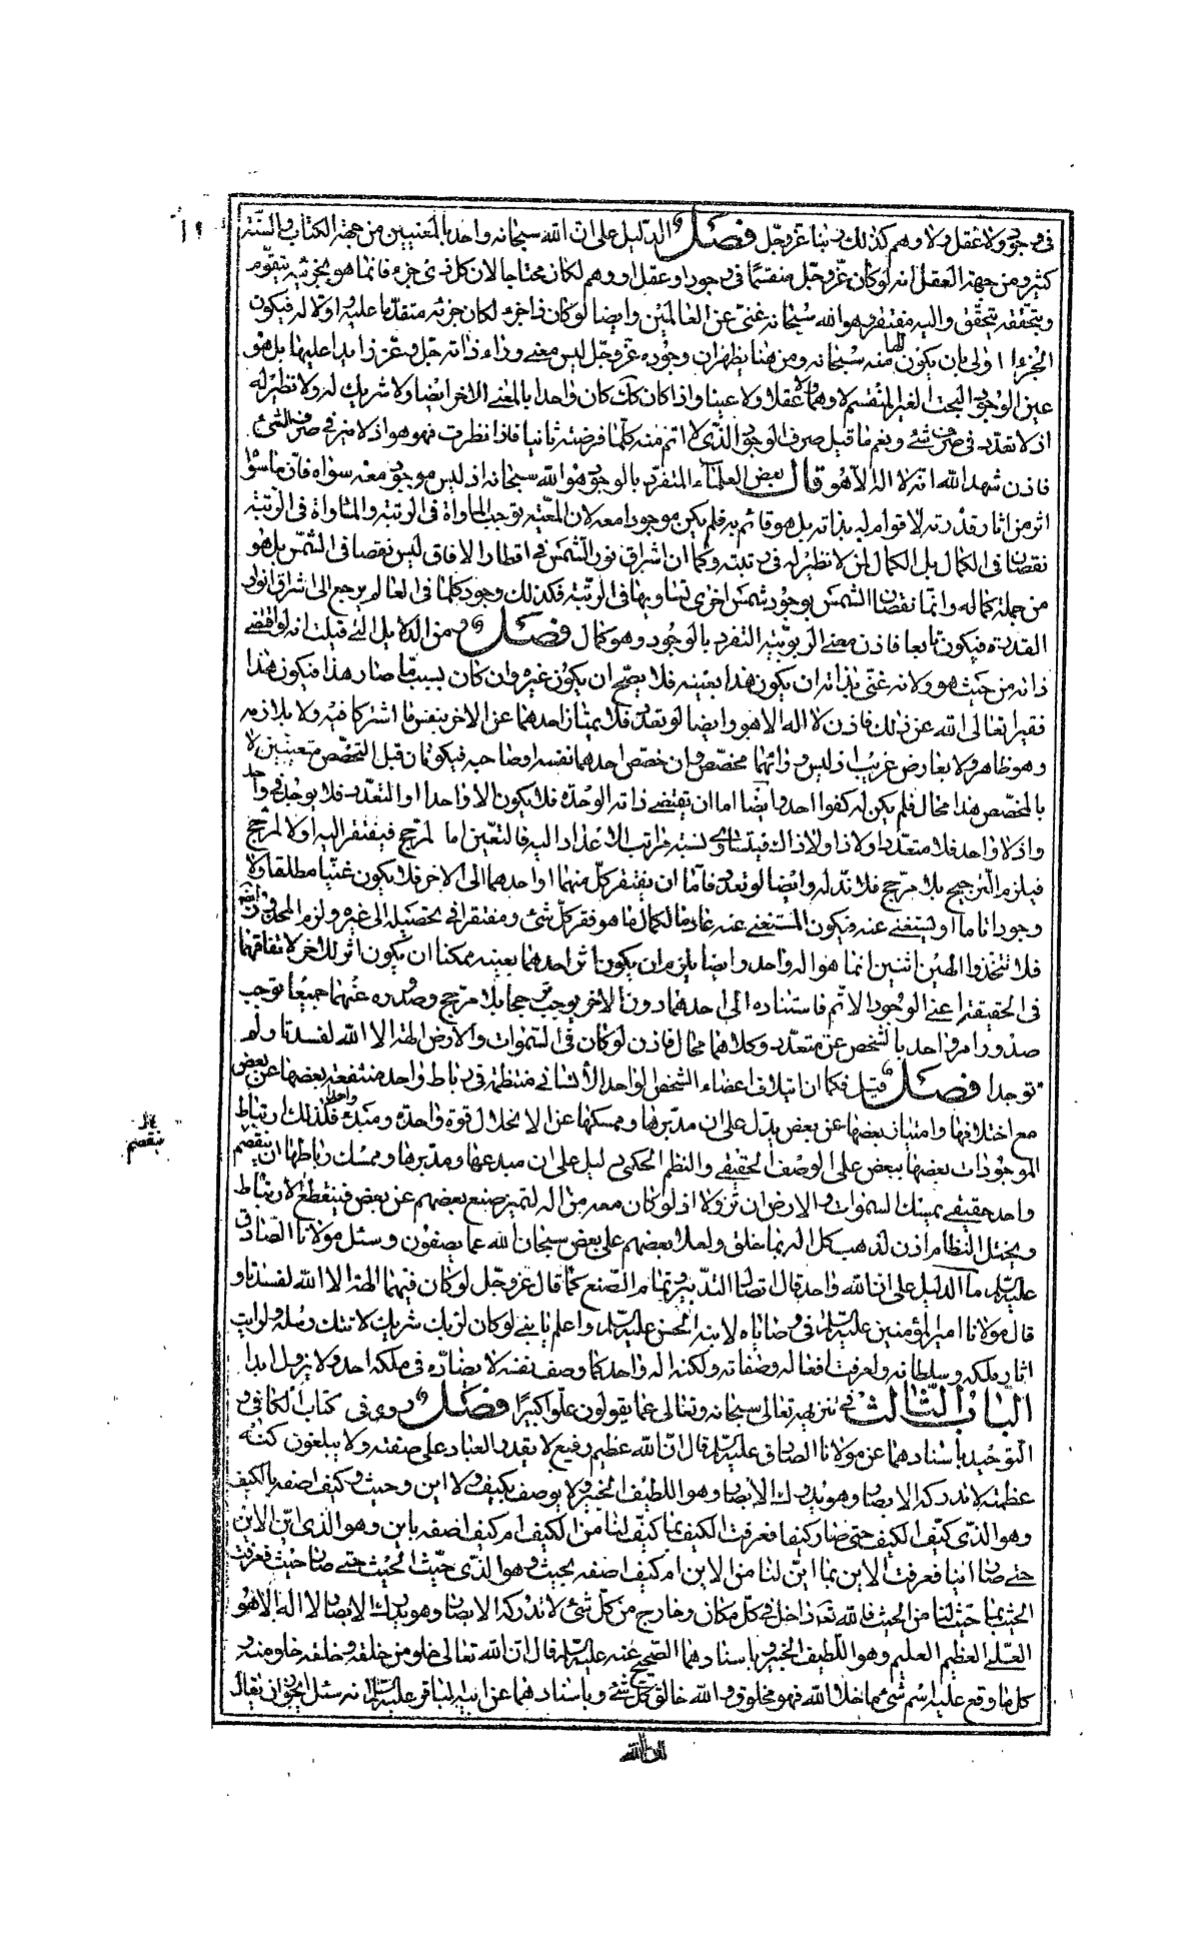 ١٩
في وجود ولا عقل ولا وهم كذلك ربنا عز وجل فصل الدليل على ان الله سبحانه واحد بالمعنيين من جهة الكتاب والسنة
كثير ومن جهة العقل انه لو كان عز وجل منقسما في وجود او عقل او وهم لكان محتاجا لان كل ذي جزء فانما هو بجزئه يتقوم
وبتحققه يتحقق واليه مفتقر وهو الله سبحانه غني عن العالمين وايضا لو كان ذا جزء لكان جزئه متقدما عليه واولا له فيكون
الجزء اولى بان يكون الها منه سبحانه ومن هنا يظهر ان وجوده عز وجل ليس معنى وراء ذاته جل وعز زايدا عليها بل هو
عين الوجود البحت الغير المنقسم لا وهما ولا عقلا ولا عينا واذا كان كك كان واحدا بالمعنى الاخر ايضا ولا شريك له ولا نظير له
اذ لا تعدد في صرف شئ ونعم ما قيل صرف الوجود الذي لا اتم منه كلما فرضته ثانيا فاذا نظرت فهو هو اذ لا ميز في صرف الشئ
فاذن شهد الله انه لا اله الا هو قال بعض العلماء المتفرد بالوجود هو الله سبحانه اذ ليس موجود معه سواه فان ما سواه
اثر من اثار قدرته لا قوام له بذاته بل هو قائم به فلم يكن موجودا معه لان المعية توجب المساواة في الرتبة والمساواة في الرتبة
نقصان في الكمال بل الكمال لمن لا نظير له في رتبته وكما ان اشراق نور الشمس في اقطار الافاق ليس نقصا في الشمس بل هو
من جملة كماله وانما نقصان الشمس بوجود شمس اخرى تساويها في الرتبة فكذلك وجود كلما في العالم يرجع الى اشراق انوار
القدرة فيكون تابعا فاذن معنى الربوبية التفرد بالوجود وهو كمال فصل ومن الدلايل التي قيلت انه لو اقتضى
ذاته من حيث هو ولانه غني بذاته ان يكون هذا بعينه فلا يصح ان يكون غيره وان كان بسبب ما صار هذا فيكون هذا
فقيرا تعالى الله عن ذلك فاذن لا اله الا هو وايضا لو تعدد فلا يمتاز احدهما عن الاخر بنفس ما اشتركا فيه ولا بلازمه
وهو ظاهر ولا بعارض غريب اذ ليس ورائهما مخصص وان خصص احدهما نفسه او صاحبه فيكونان قبل التخصص متعينين لا
بالمخصص هذا محال فلم يكن له كفوا احد وايضا اما ان يقتضي ذاته الوحدة فلا يكون الا واحدا او التعدد فلا يوجد في واحد
واذ لا واحد فلا متعدد او لا ذا ولا ذاك فيتساوى نسبة مراتب الاعداد اليه فالتعين اما لمرجح فيفتقر اليه او لا لمرجح
فيلزم الترجيح بلا مرجح فلا ند له وايضا لو تعدد فاما ان يفتقر كل منهما او احدهما الى الاخر فلا يكون غنيا مطلقا ولا
وجودا تاما او يستغني عنه فيكون المستغنى عنه عادما لكمال ما هو فقر كل شئ ومفتقرا في تحصيله الى غيره ولزم المحذور
فلا تتخذوا الهين اثنين انما هو اله واحد وايضا يلزم ان يكون اثر احدهما بعينه ممكنا ان يكون اثر للاخر لاتفاقهما
في الحقيقة اعني الوجود الاتم فاستناده الى احدهما دون الاخر يوجب ترجيحا بلا مرجح وصدوره عنهما جميعا يوجب
صدور امر واحد بالشخص عن متعدد وكلاهما محال فاذن لو كان في السموات والارض الهة الا الله لفسدتا ولم
توجدا فصل قيل فكما ان ايتلاف اعضاء الشخص الواحد الانساني منتظمة في رباط واحد منتفعة بعضها عن بعض
مع اختلافها وامتياز بعضها عن بعض يدل على ان مدبرها وممسكها عن الانحلال قوة واحدة ومبدء واحد فكذلك ارتباط
الموجودات بعضها ببعض على الوصف الحقيقي والنظم الحكمي دليل على ان مبدعها ومدبرها وممسك رباطها ان ينفصم
ينقصم
واحد حقيقي يمسك السموات والارض ان تزولا اذ لو كان معه من اله لتميز صنع بعضهم عن بعض فينقطع الارتباط
ويختل النظام اذن لذهب كل اله بما خلق ولعلا بعضهم على بعض سبحان الله عما يصفون وسئل مولانا الصادق
عليه السلام ما الدليل على ان الله واحد قال اتصال التدبير وتمام الصنع كما قال عز وجل لو كان فيهما الهة الا الله لفسدتا و
قال مولانا امير المؤمنين عليه السلام في وصاياه لابنه الحسن عليه السلام واعلم يا بني لو كان لربك شريك لاتتك رسله ولرايت
اثار ملكه وسلطانه ولعرفت افعاله وصفاته ولكنه اله واحد كما وصف نفسه لا يضاده في ملكه احد ولا يزول ابدا
الباب الثالث في تنزيهه تعالى سبحانه وتعالى عما يقولون علوا كبيرا فصل روى في كتاب الكافي و
التوحيد باسنادهما عن مولانا الصادق عليه السلام قال ان الله عظيم رفيع لا يقدر العباد على صفته ولا يبلغون كنه
عظمته لا تدركه الابصار وهو يدرك الابصار وهو اللطيف الخبير ولا يوصف بكيف ولا اين وحيث وكيف اصفه بالكيف
وهو الذي كيف الكيف حتى صار كيفا فعرفت الكيف بما كيف لنا من الكيف ام كيف اصفه باين وهو الذي اين الاين
حتى صار اينا فعرفت الاين بما اين لنا من الاين ام كيف اصفه بحيث وهو الذي حيث الحيث حتى صار حيث فعرفت
الحيث بما حيث لنا من الحيث فالله تعه داخل في كل مكان وخارج من كل شئ لا تدركه الابصار وهو يدرك الابصار لا اله الا هو
العلي العظيم العليم وهو اللطيف الخبير وباسنادهما الصحيح عنه عليه السلام قال ان الله تعالى خلو من خلقه وخلقه خلو منه و
كل ما وقع عليه اسم شئ مما خلا الله فهو مخلوق والله خالق كل شئ وباسنادهما عن ابيه الباقر عليه السلام انه سئل ايجوز ان يقال
ان الله